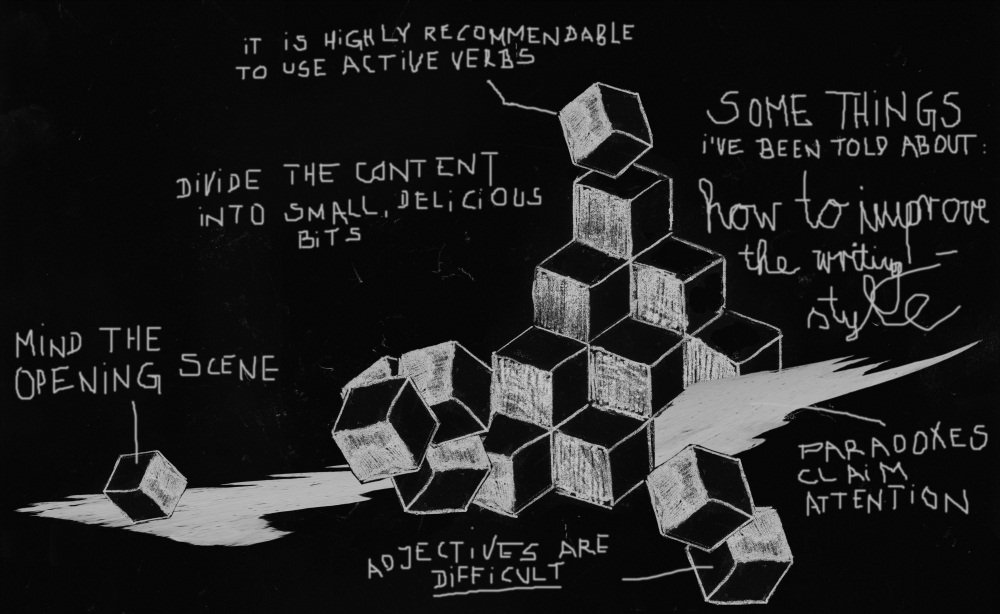 iT IS HiGHLY RECOMMENDABLE
TO USE ACTiVE VERBS
SOME THiNGS
i'VE BEEN TOLD ABOUT:
how to improve
the writing
style
DiViDE THE CONTENT
iNTO SMALL, DELiCiOUS
BiTS
MiND THE
OPENING SCENE
PARADOXES
CLAiM
ATTENTiON
ADJECTiVES ARE
DiFFiCULT